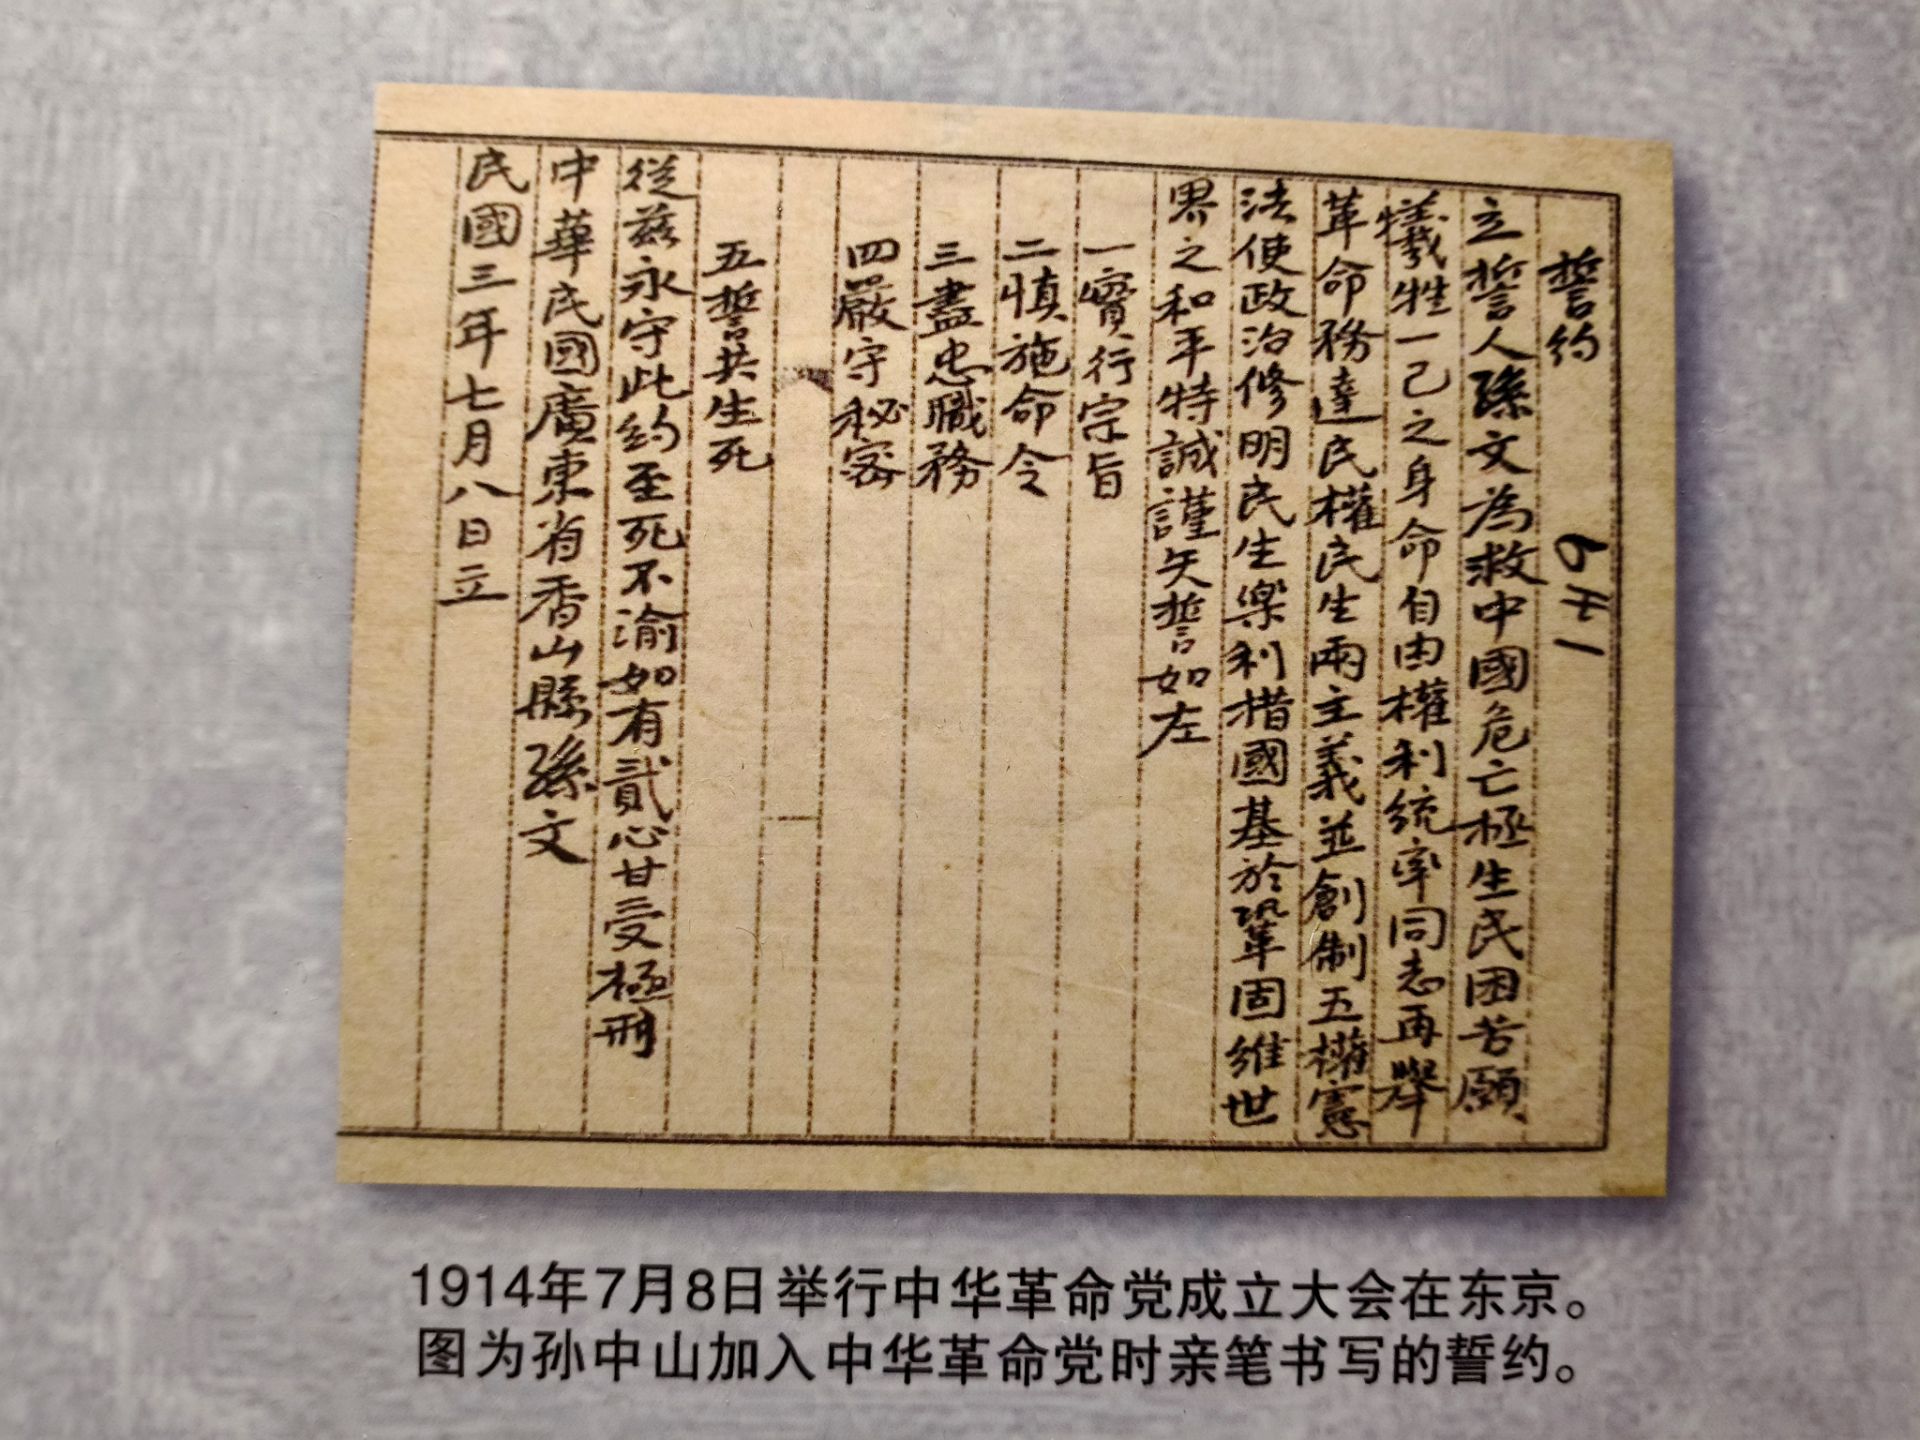 誓約
立誓人孫文為救中國危亡極生民困苦願
犧牲一己之身命自由權利統率同志再舉
革命務達民權民生兩主義並創制五權憲
法使政治修明民生樂利措國基於鞏固維世
界之和平特誠謹矢誓如左
一實行宗旨
二慎施命令
三盡忠職務
四嚴守秘密
五誓共生死
從茲永守此約至死不渝如有貳心甘受極刑
中華民國廣東省香山縣孫文
民國三年七月八日立
1914年7月8日举行中华革命党成立大会在东京。
图为孙中山加入中华革命党时亲笔书写的誓约。